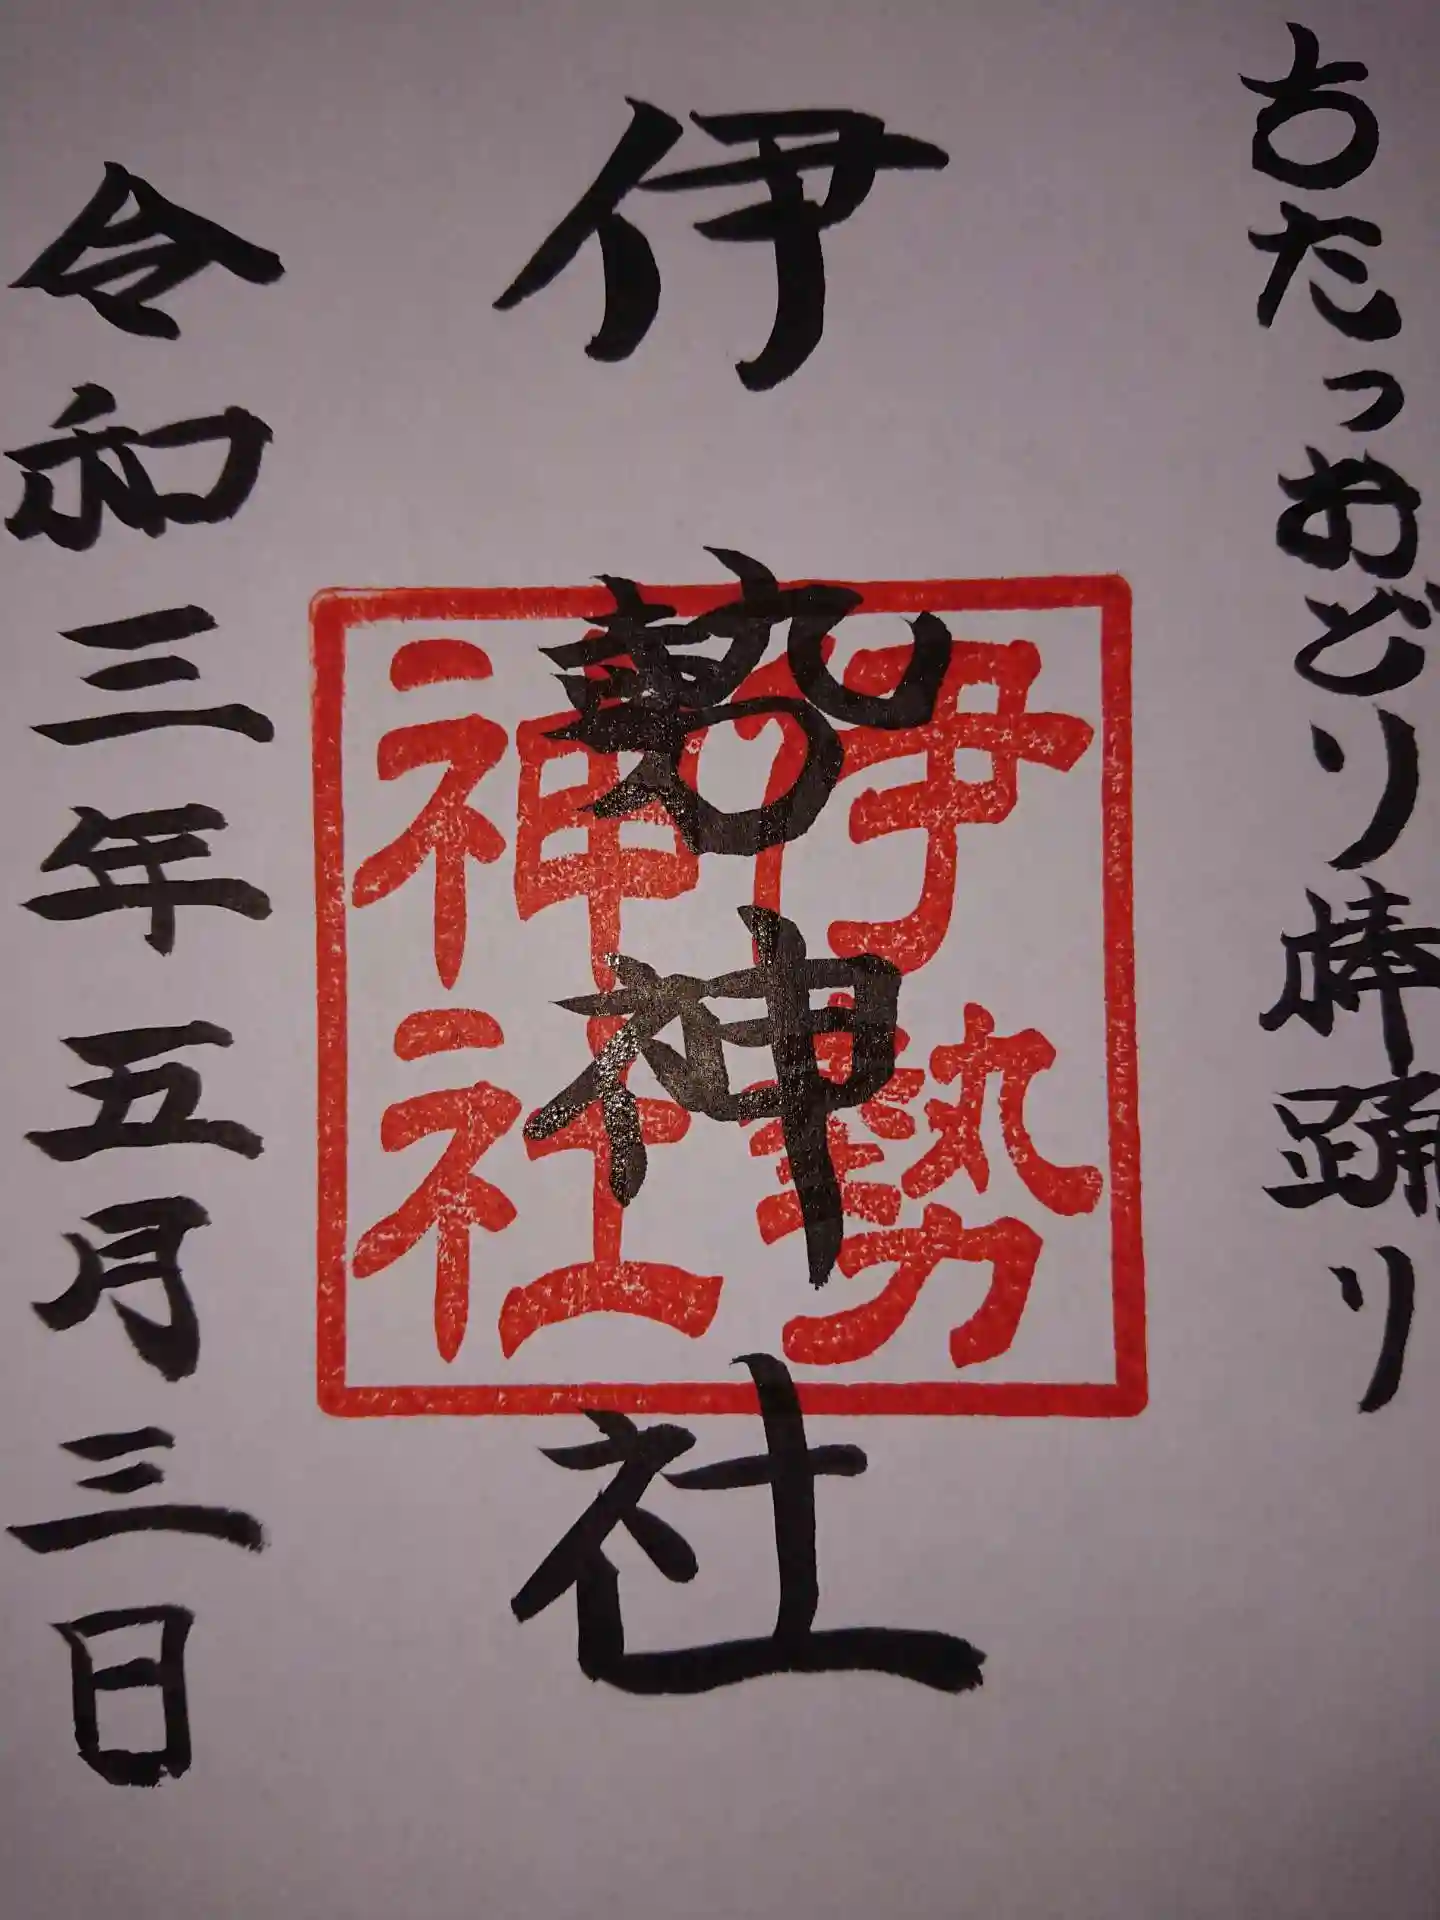 古たっおどり棒踊り
伊勢神社
伊勢
神社
令和三年五月三日